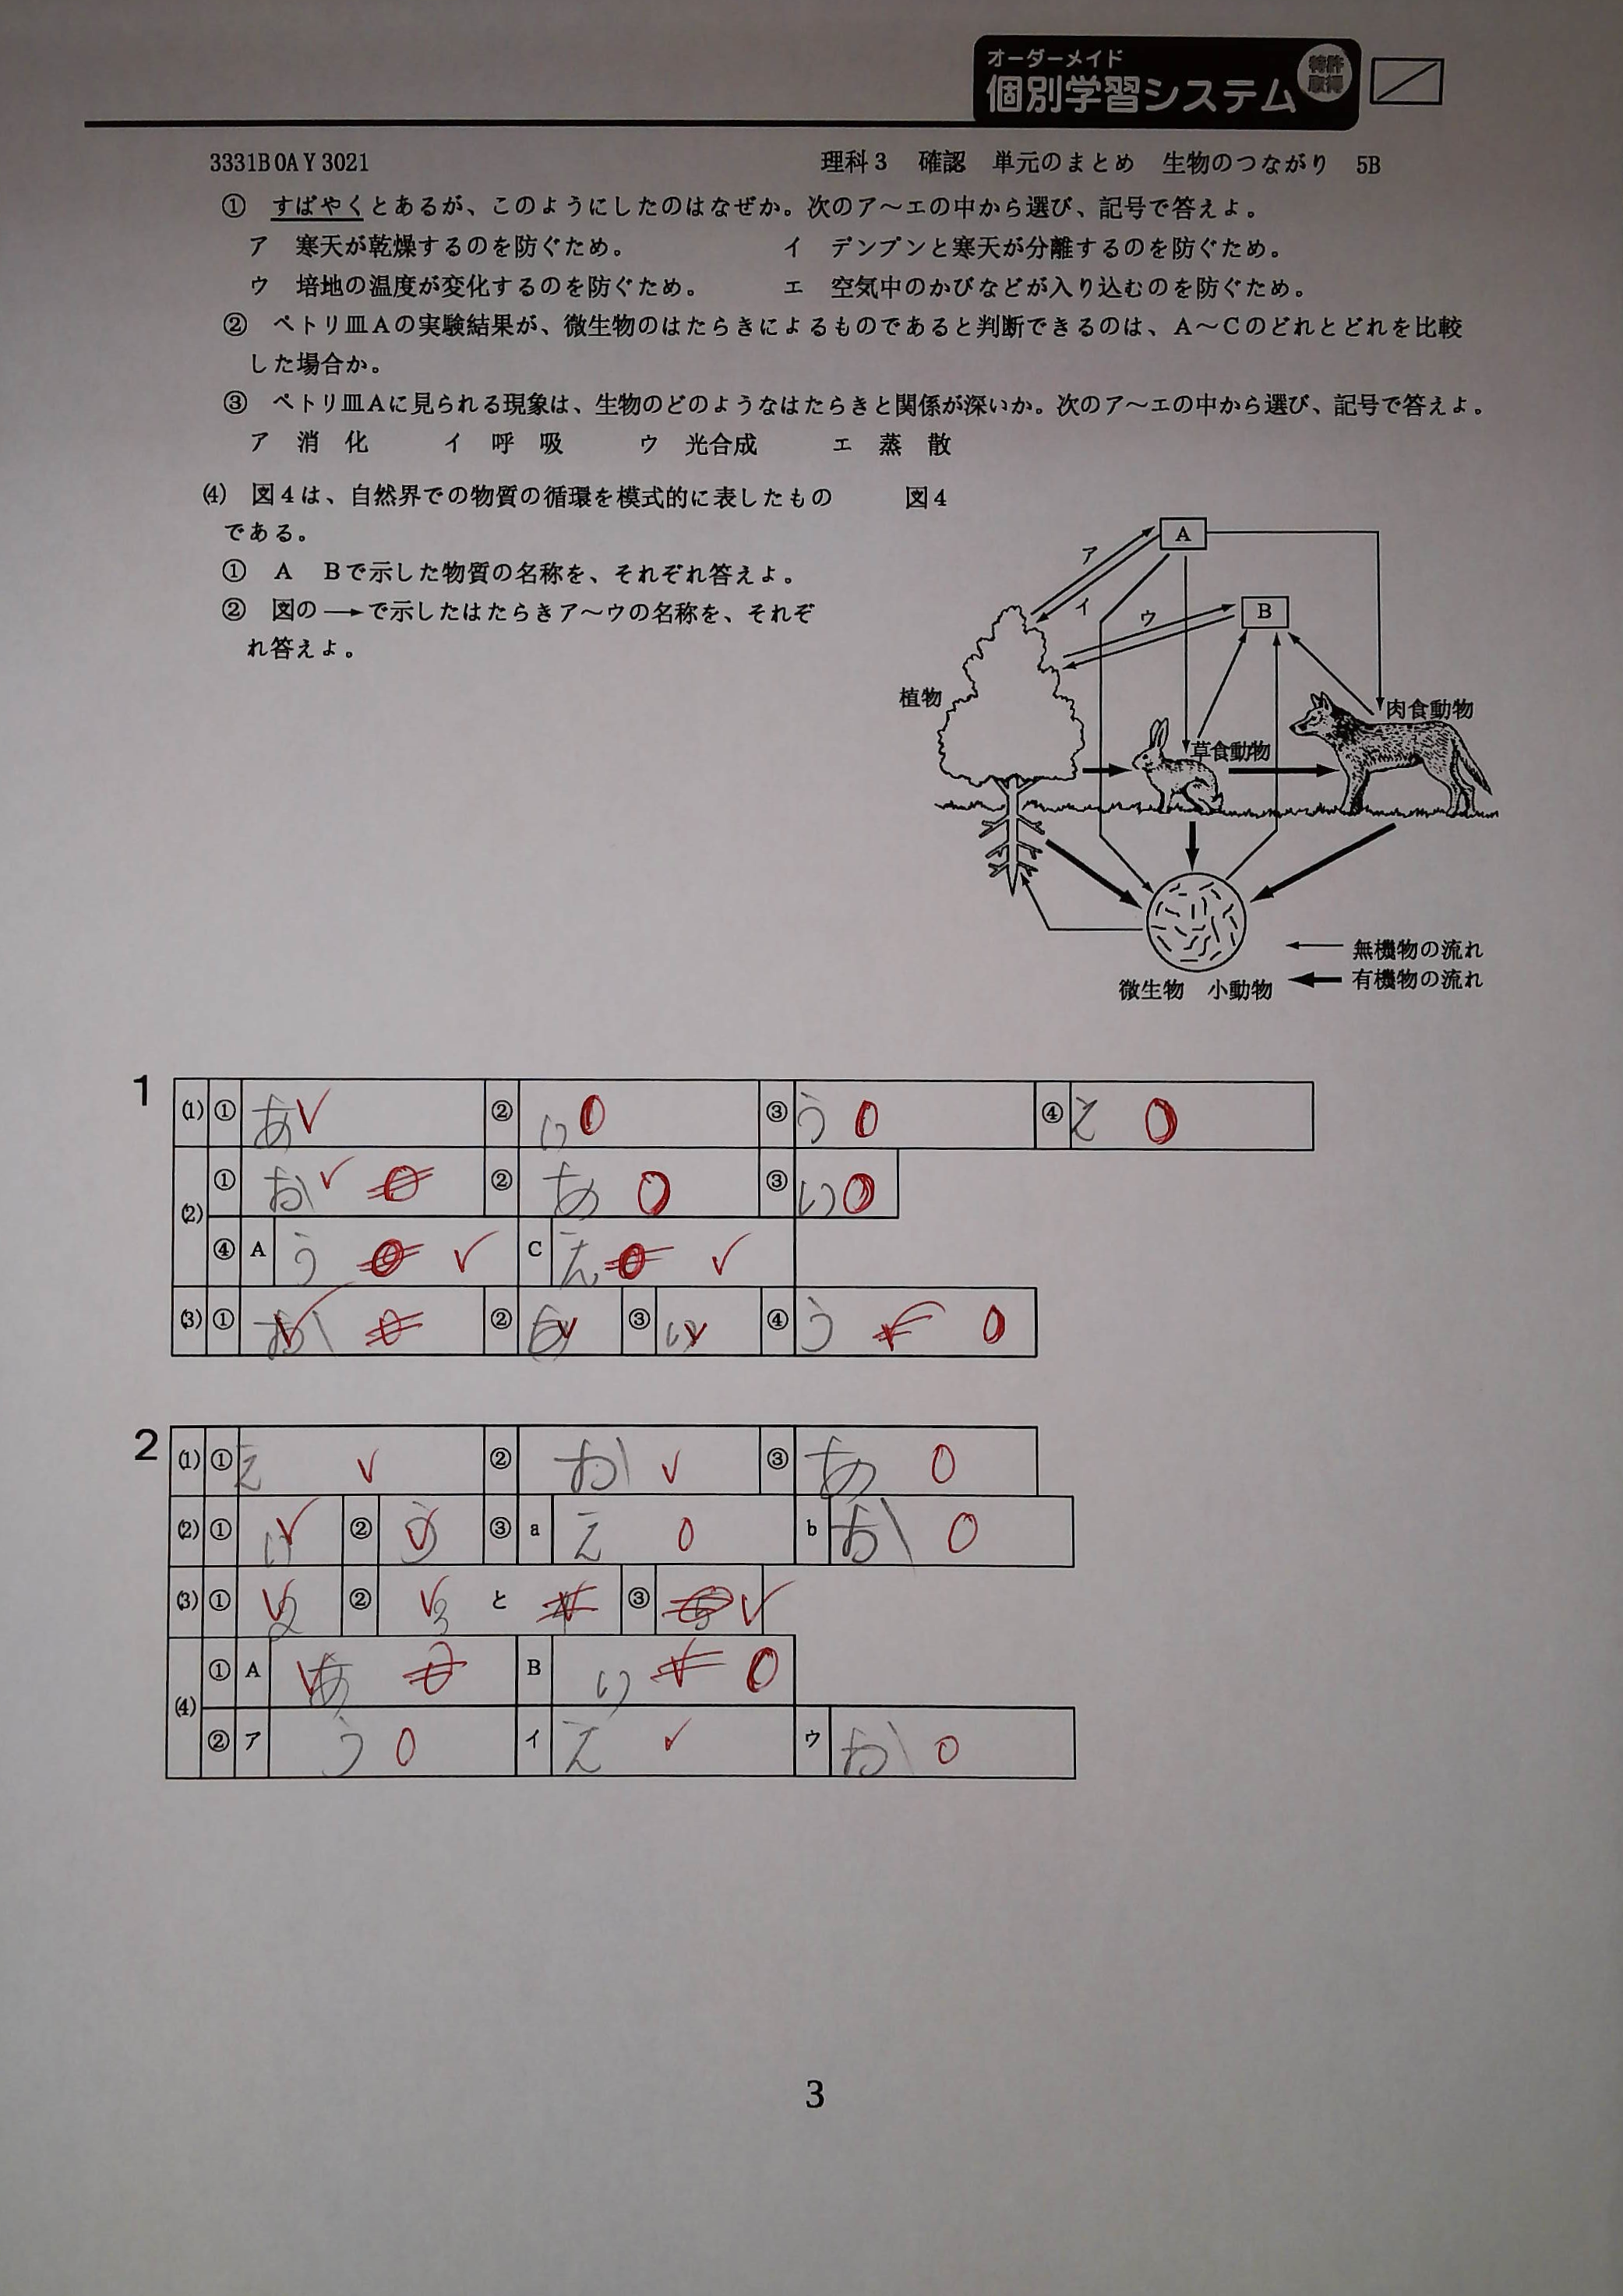 オーダーメイド
個別学習システム
特許
取得
3331B0AY3021 理科3 確認 単元のまとめ 生物のつながり 5B
① すばやくとあるが、このようにしたのはなぜか。次のア～エの中から選び、記号で答えよ。
ア 寒天が乾燥するのを防ぐため。 イ デンプンと寒天が分離するのを防ぐため。
ウ 培地の温度が変化するのを防ぐため。 エ 空気中のかびなどが入り込むのを防ぐため。
② ペトリ皿Aの実験結果が、微生物のはたらきによるものであると判断できるのは、A～Cのどれとどれを比較
した場合か。
③ ペトリ皿Aに見られる現象は、生物のどのようなはたらきと関係が深いか。次のア～エの中から選び、記号で答えよ。
ア 消 化 イ 呼 吸 ウ 光合成 エ 蒸 散
(4) 図4は、自然界での物質の循環を模式的に表したもの
である。
① A Bで示した物質の名称を、それぞれ答えよ。
② 図の→で示したはたらきア～ウの名称を、それぞ
れ答えよ。
図4
A
ア
イ
ウ
B
植物
肉食動物
草食動物
無機物の流れ
微生物 小動物
有機物の流れ
1
(1) ① あ ② い ③ う ④ え
(2) ① お ② あ ③ い
④ A う C え
(3) ① お ② あ ③ い ④ う
2
(1) ① え ② お ③ あ
(2) ① い ② う ③ a え b お
(3) ① 2 ② 3 と ③
(4) ① A あ B い
② ア う イ え ウ お
3